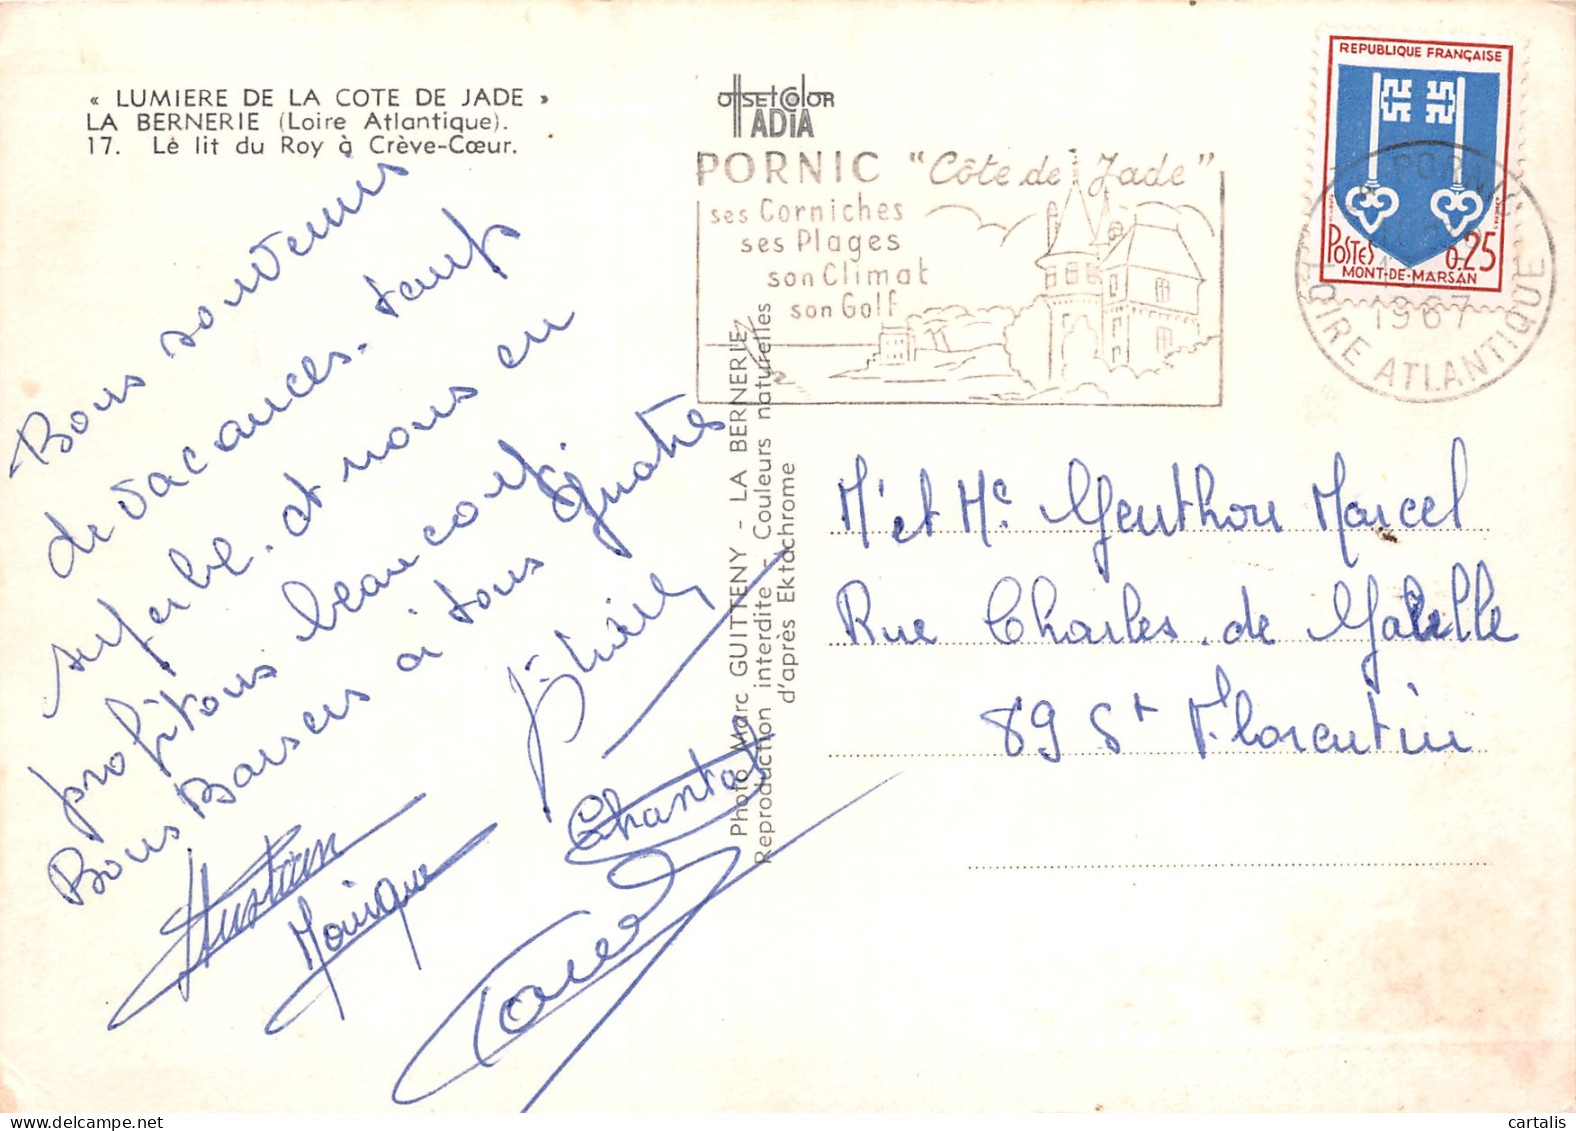 « LUMIERE DE LA COTE DE JADE »
LA BERNERIE (Loire Atlantique).
17. Le lit du Roy à Crève-Cœur.
OffSEt COlOR
IADIA
PORNIC "Côte de Jade"
ses Corniches
ses Plages
son Climat
son Golf
REPUBLIQUE FRANÇAISE
POSTES 0.25
MONT-DE-MARSAN
PORNIC
1967
LOIRE ATLANTIQUE
Bons souvenirs
de vacances. temps
superbe. et nous en
profitons beaucoup
Bons Baisers à tous quatre
Monique
Chantal
Photo Marc GUITTENY - LA BERNERIE
Reproduction interdite - Couleurs naturelles
d'après Ektachrome
Mr et Me Genthon Marcel
Rue Charles de
89 St Florentin
cartalis